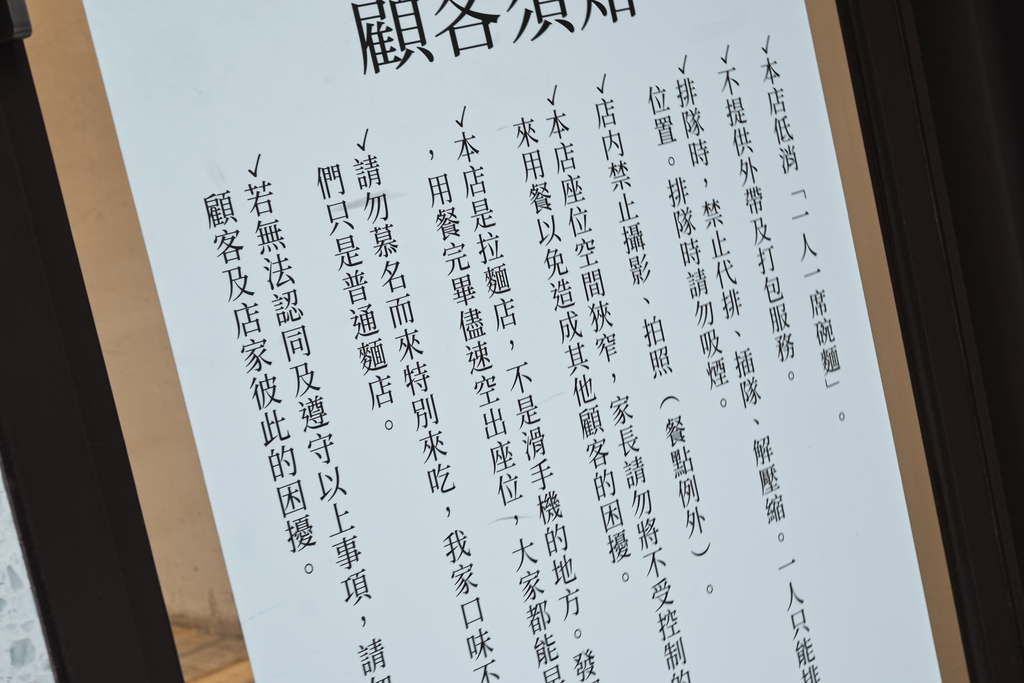 顧客須知
✓本店低消「一人一席碗麵」。
✓不提供外帶及打包服務。
✓排隊時，禁止代排、插隊、解壓縮。一人只能排
位置。排隊時請勿吸煙。
✓店內禁止攝影、拍照（餐點例外）。
✓本店座位空間狹窄，家長請勿將不受控制的
來用餐以免造成其他顧客的困擾。
✓本店是拉麵店，不是滑手機的地方。發
，用餐完畢儘速空出座位，大家都能
✓請勿慕名而來特別來吃，我家口味不
們只是普通麵店。
✓若無法認同及遵守以上事項，請
顧客及店家彼此的困擾。